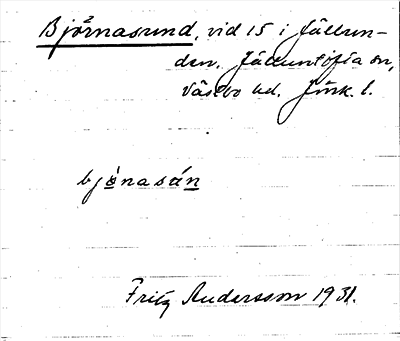 Björnasund, vid 15 i Fällun-
den. Jälluntofta sn,
Västbo hd. Jönk. l.
bjònasún
Fritz Andersson 1931.